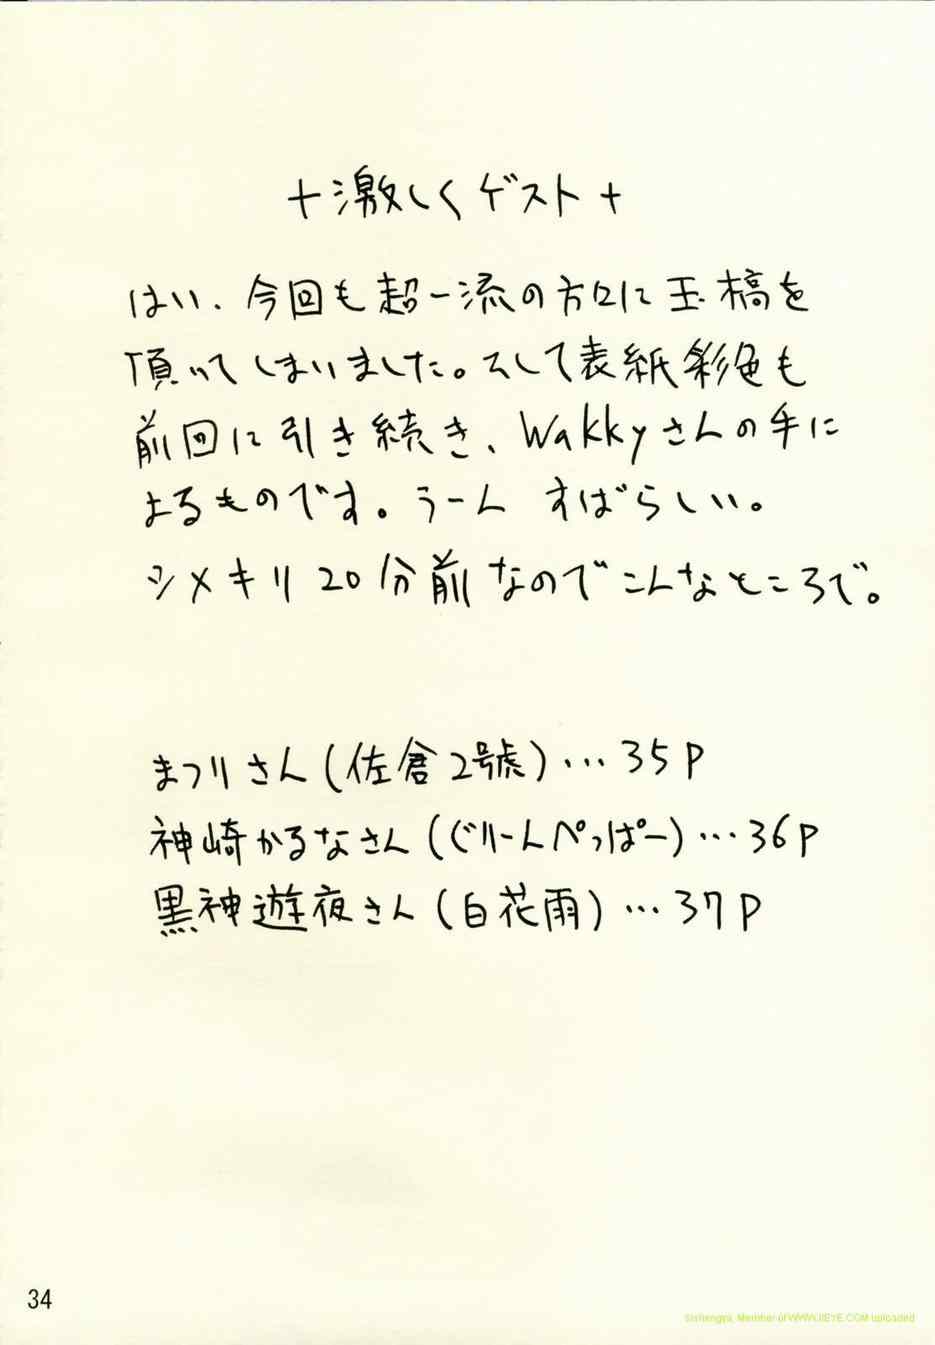 ＋激しくゲスト＋
はい、今回も超一流の方々に玉稿を
頂いてしまいました。そして表紙彩色も
前回に引き続き、Wakkyさんの手に
よるものです。うーん すばらしい。
シメキリ20分前なのでこんなところで。
まつりさん(佐倉2號)…35P
神崎かるなさん(ぐりーんぺっぱー)…36P
黒神遊夜さん(白花雨)…37P
34
Member of uploaded